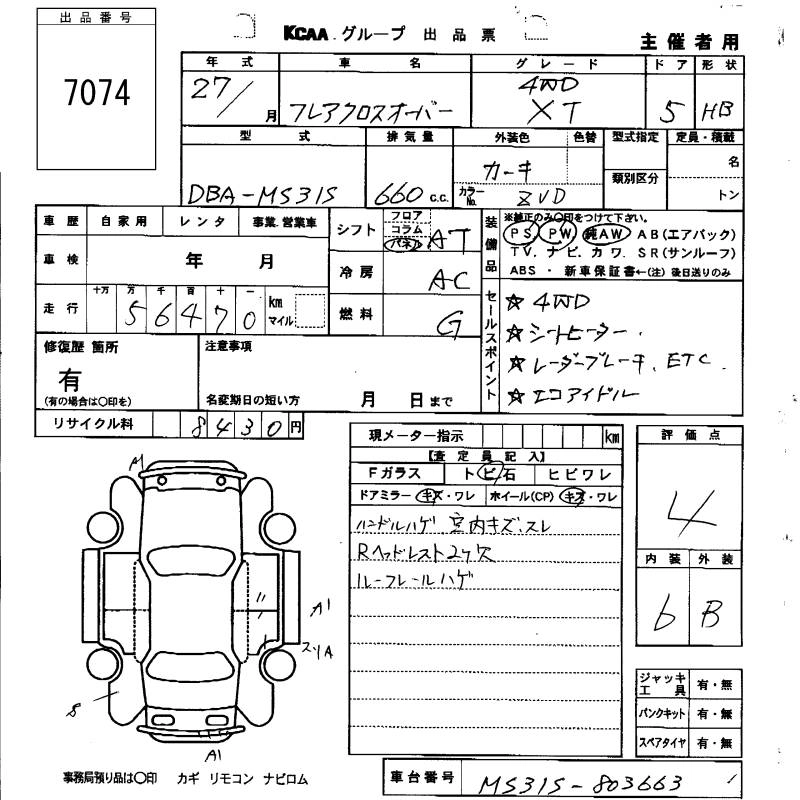 出品番号
7074
KCAA グループ 出品票
主催者用
年式 車名 グレード ドア 形状
27/ 月 フレアクロスオーバー 4WD XT 5 HB
型式 排気量 外装色 色替 型式指定 定員・積載
DBA-MS31S 660 c.c. カーキ カラーNo. ZVD 類別区分 名 トン
車歴 自家用 レンタ 事業.営業車
車検 年 月
走行 十万 万 千 百 十 一
56470 km マイル
シフト フロア コラム パネル AT
冷房 AC
燃料 G
装備品 ※純正のみ〇印をつけて下さい。
PS PW 純AW AB(エアバック)
TV. ナビ. カワ. SR(サンルーフ)
ABS ・ 新車保証書←(注) 後日送りのみ
セールスポイント
☆ 4WD
☆ シートヒーター.
☆ レーダーブレーキ. ETC.
☆ エコアイドル
修復歴 箇所
有
(有の場合は〇印を)
注意事項
名変期日の短い方 月 日まで
リサイクル料 8430円
現メーター指示 km
【査定員記入】
Fガラス トビ石 ヒビワレ
ドアミラー キズ・ワレ ホイール(CP) キズ・ワレ
ハンドルハゲ 室内キズ.スレ
Rヘッドレスト2ケ欠
ルーフレールハゲ
評価点
4
内装 外装
6 B
ジャッキ工具 有・無
パンクキット 有・無
スペアタイヤ 有・無
A1
A1
スリA
8
A1
事務局預り品は〇印 カギ リモコン ナビロム
車台番号 MS31S-803663